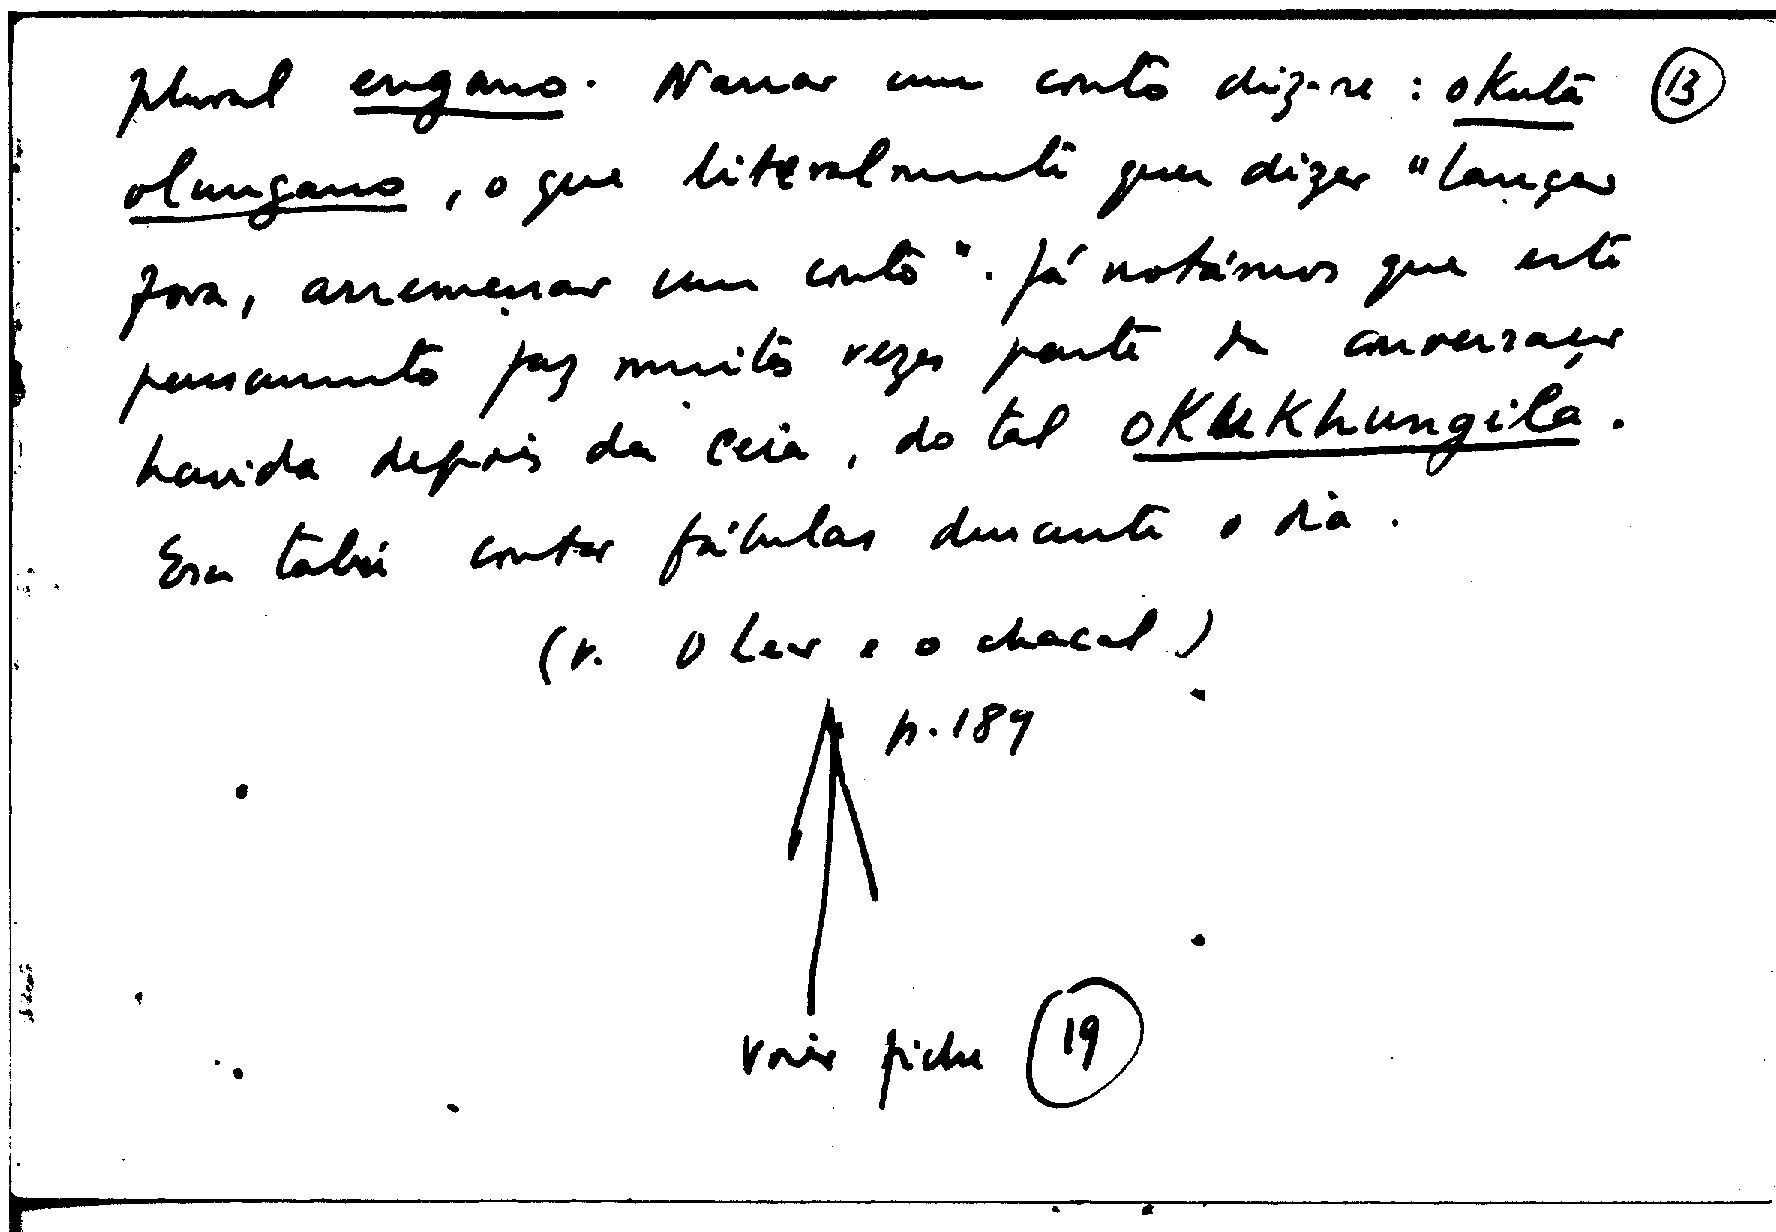 plural engano. Narrar um conto diz-se: okuta (13)
olungano, o que literalmente quer dizer "lançar
fora, arremessar um conto". Já notámos que este
pensamento faz muitas vezes parte da conversação
havida depois da ceia, do tal okukhungila.
Era tabú contar fábulas durante o dia.
(v. O leão e o chacal)
p. 189
voir fiche (19)